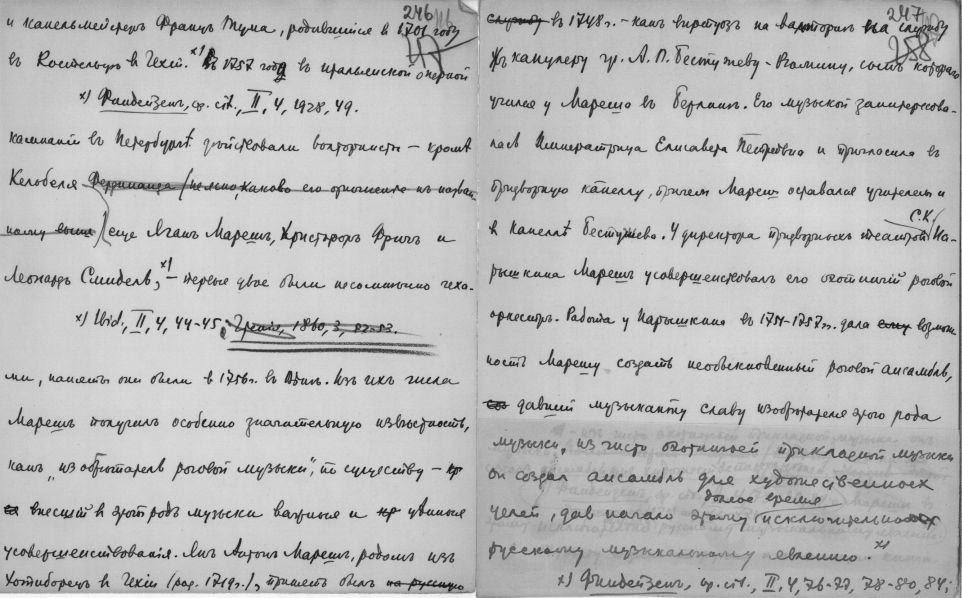 246
и капельмейстер Франц Тума, родившийся в 1701 году
в Костельце в Чехiи.x) В 1757 году в итальянской оперной
x) Финдейзен, op. cit., II, 4, 1928, 49.
кампанiи въ Петербургѣ действовали волторнисты – кромѣ
Келобеля Фердинанда (неясно, каково его отношение к назван-
ному выше) еще Яганъ Марешъ, Христофоръ Фричъ и
Леонардъ Смидель,x) – первые двое были несомнѣнно чеха-
x) Ibid., II, 4, 44-45; 1860, 3, 82-83.
ми, наняты они были в 1756 г. в Вѣнѣ. Изъ ихъ числа
Марешъ получилъ особенно значительную извѣстность,
какъ „изобрѣтатель роговой музыки", по существу –
внесшiй в этотъ родъ музыки важныя и цѣнныя
усовершенствованiя. Янъ Антонъ Марешъ, родомъ изъ
Хотиборжъ в Чехiи (род. 1719 г.), принятъ былъ на русскую
247
258
службу в 1748 г. – какъ виртуозъ на валторнѣ на службу
къ канцлеру гр. А. П. Бестужеву-Рюмину, сынъ котораго
учился у Мареша въ Берлинѣ. Его музыкой заинтересова-
лась Императрица Елисавета Петровна и пригласила въ
придворную капеллу, причем Мареш оставался учителем и
в капеллѣ Бестужева. У директора придворныхъ театров С. К. На-
рышкина Марешъ усовершенствовалъ его охотничiй роговой
оркестръ. Работа у Нарышкина въ 1751-1757 гг. дала ему возмож-
ность Марешу создать необыкновенный роговой ансамбль,
давшiй музыканту славу изобрѣтателя этого рода
музыки, из чисто охотничьей прикладной музыки
он создал ансамбль для художественных
целей, дав начало этому долгое время исключительно
русскому музыкальному явлению.x)
x) Финдейзен, op. cit., II, 4, 76-77, 78-80, 84;